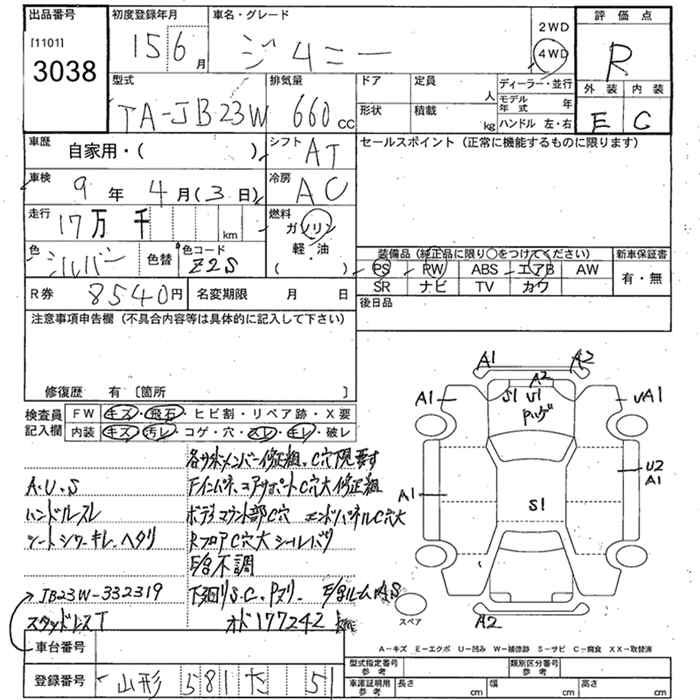 出品番号 初度登録年月 車名・グレード 評価点
[1101] 15 6月 ジムニー 2WD
3038 4WD R
型式 排気量 ドア 定員 人 ディーラー・並行 外装 内装
TA-JB23W 660cc 形状 積載 kg モデル年式 年 E C
ハンドル 左・右
車歴 自家用・( ) シフト AT セールスポイント(正常に機能するものに限ります)
車検 9年4月(3日) 冷房 AC
走行 17万 千 km 燃料 ガソリン
軽・油
色 シルバー 色替 色コード Z2S ( ) 装備品(純正品に限り○をつけてください) 新車保証書
PS PW ABS エアB AW 有・無
SR ナビ TV カワ
R券 8540円 名変期限 月 日 後日品
注意事項申告欄(不具合内容等は具体的に記入して下さい)
修復歴 有〔箇所 〕
検査員記入欄 FW キズ・飛石・ヒビ割・リペア跡・X要
内装 キズ・汚レ・コゲ・穴・スレ・キレ・破レ
A1 A2
A2
S1 U1
A1 A1
U2
A1 A1
S1
A2
スペア
A.U.S
ハンドルスレ
シートシワ・キレ・ヘタリ
JB23W-332319
スタッドレスT
C穴大修正粗
ボデーマウント部C穴 エンドパネルC穴大
RフロアC穴大 シールバリ
不調
下廻りS.C.Pヌリ
オド177242
A-キズ E-エクボ U-凹み W-補修跡 S-サビ C-腐食 XX-取替済
車台番号
登録番号 山形 581 た 51
型式指定番号 参考 類別区分番号 参考
車庫証明用 参考 長さ cm 幅 cm 高さ cm